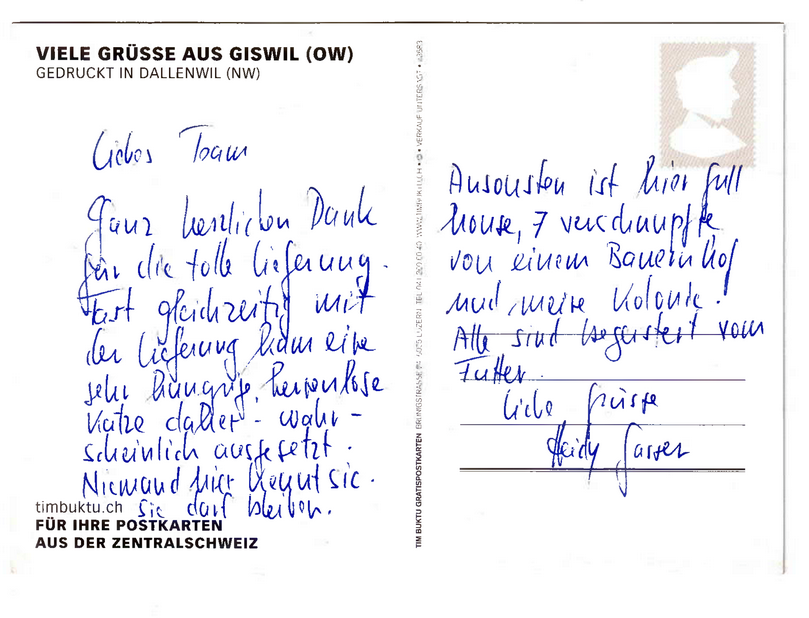 VIELE GRÜSSE AUS GISWIL (OW)
GEDRUCKT IN DALLENWIL (NW)
Liebes Team
Ganz herzlichen Dank
für die tolle Lieferung.
Fast gleichzeitig mit
der Lieferung kam eine
sehr hungrige, herrenlose
Katze daher - wahr-
scheinlich ausgesetzt.
Niemand hier kennt sie.
Sie darf bleiben.
timbuktu.ch
FÜR IHRE POSTKARTEN
AUS DER ZENTRALSCHWEIZ
TIM BUKTU GRATISPOSTKARTEN
LUZERN
VERKAUF UNTERSAGT
Ansonsten ist hier full
house, 7 verschnupfte
von einem Bauernhof
und meine Kolonie.
Alle sind begeistert vom
Futter.
Liebe Grüsse
Heidy Gasser